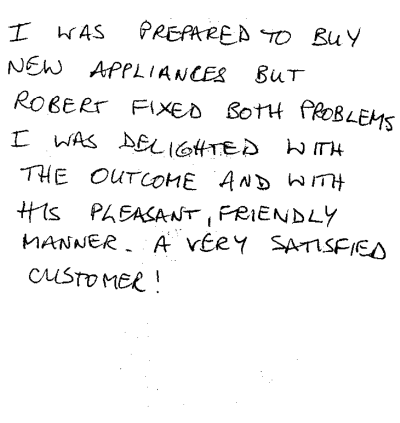 I WAS PREPARED TO BUY
NEW APPLIANCES BUT
ROBERT FIXED BOTH PROBLEMS
I WAS DELIGHTED WITH
THE OUTCOME AND WITH
HIS PLEASANT, FRIENDLY
MANNER. A VERY SATISFIED
CUSTOMER!